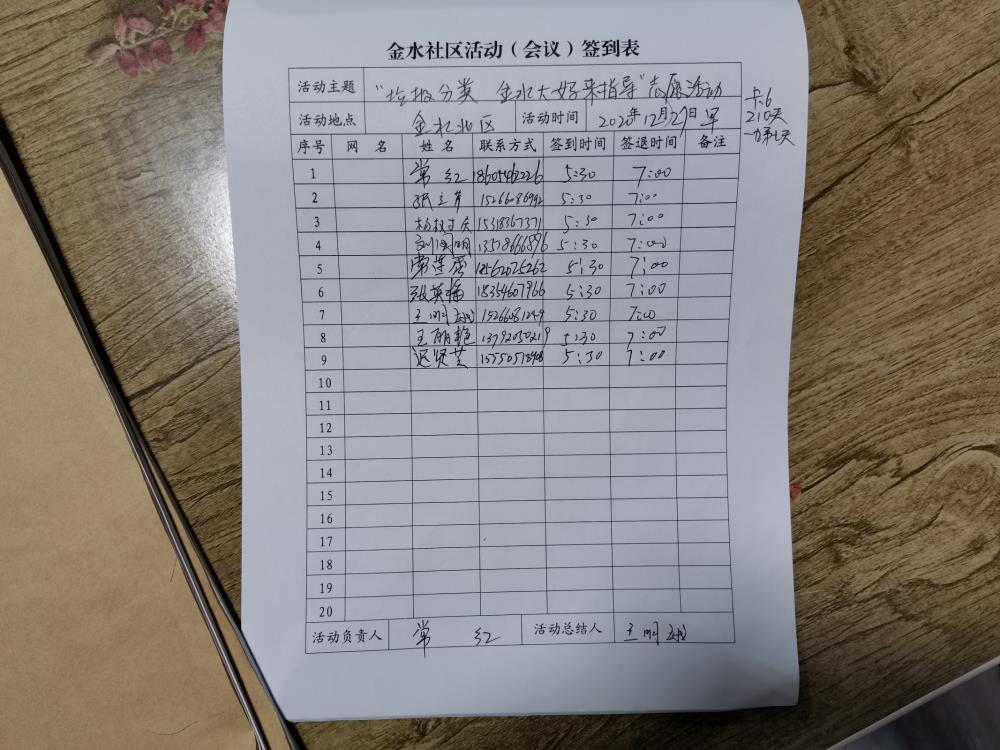 金水社区活动(会议)签到表
活动主题 "垃圾分类 金水大好来指导"志愿活动
活动地点 金水北区 活动时间 2020年12月27日早
卡:6
210天
序号 网名 姓名 联系方式 签到时间 签退时间 备注
1 常红 18605462226 5:30 7:00
2 15266086992 5:30 7:00
3 15318367371 5:30 7:00
4 13578666896 5:30 7:00
5 常莲香 18562075262 5:30 7:00
6 张英梅 18354607966 5:30 7:00
7 15266081249 5:30 7:00
8 王丽艳 13792050219 5:30 7:00
9 迟贤芸 5:30 7:00
10
11
12
13
14
15
16
17
18
19
20
活动负责人 常红 活动总结人